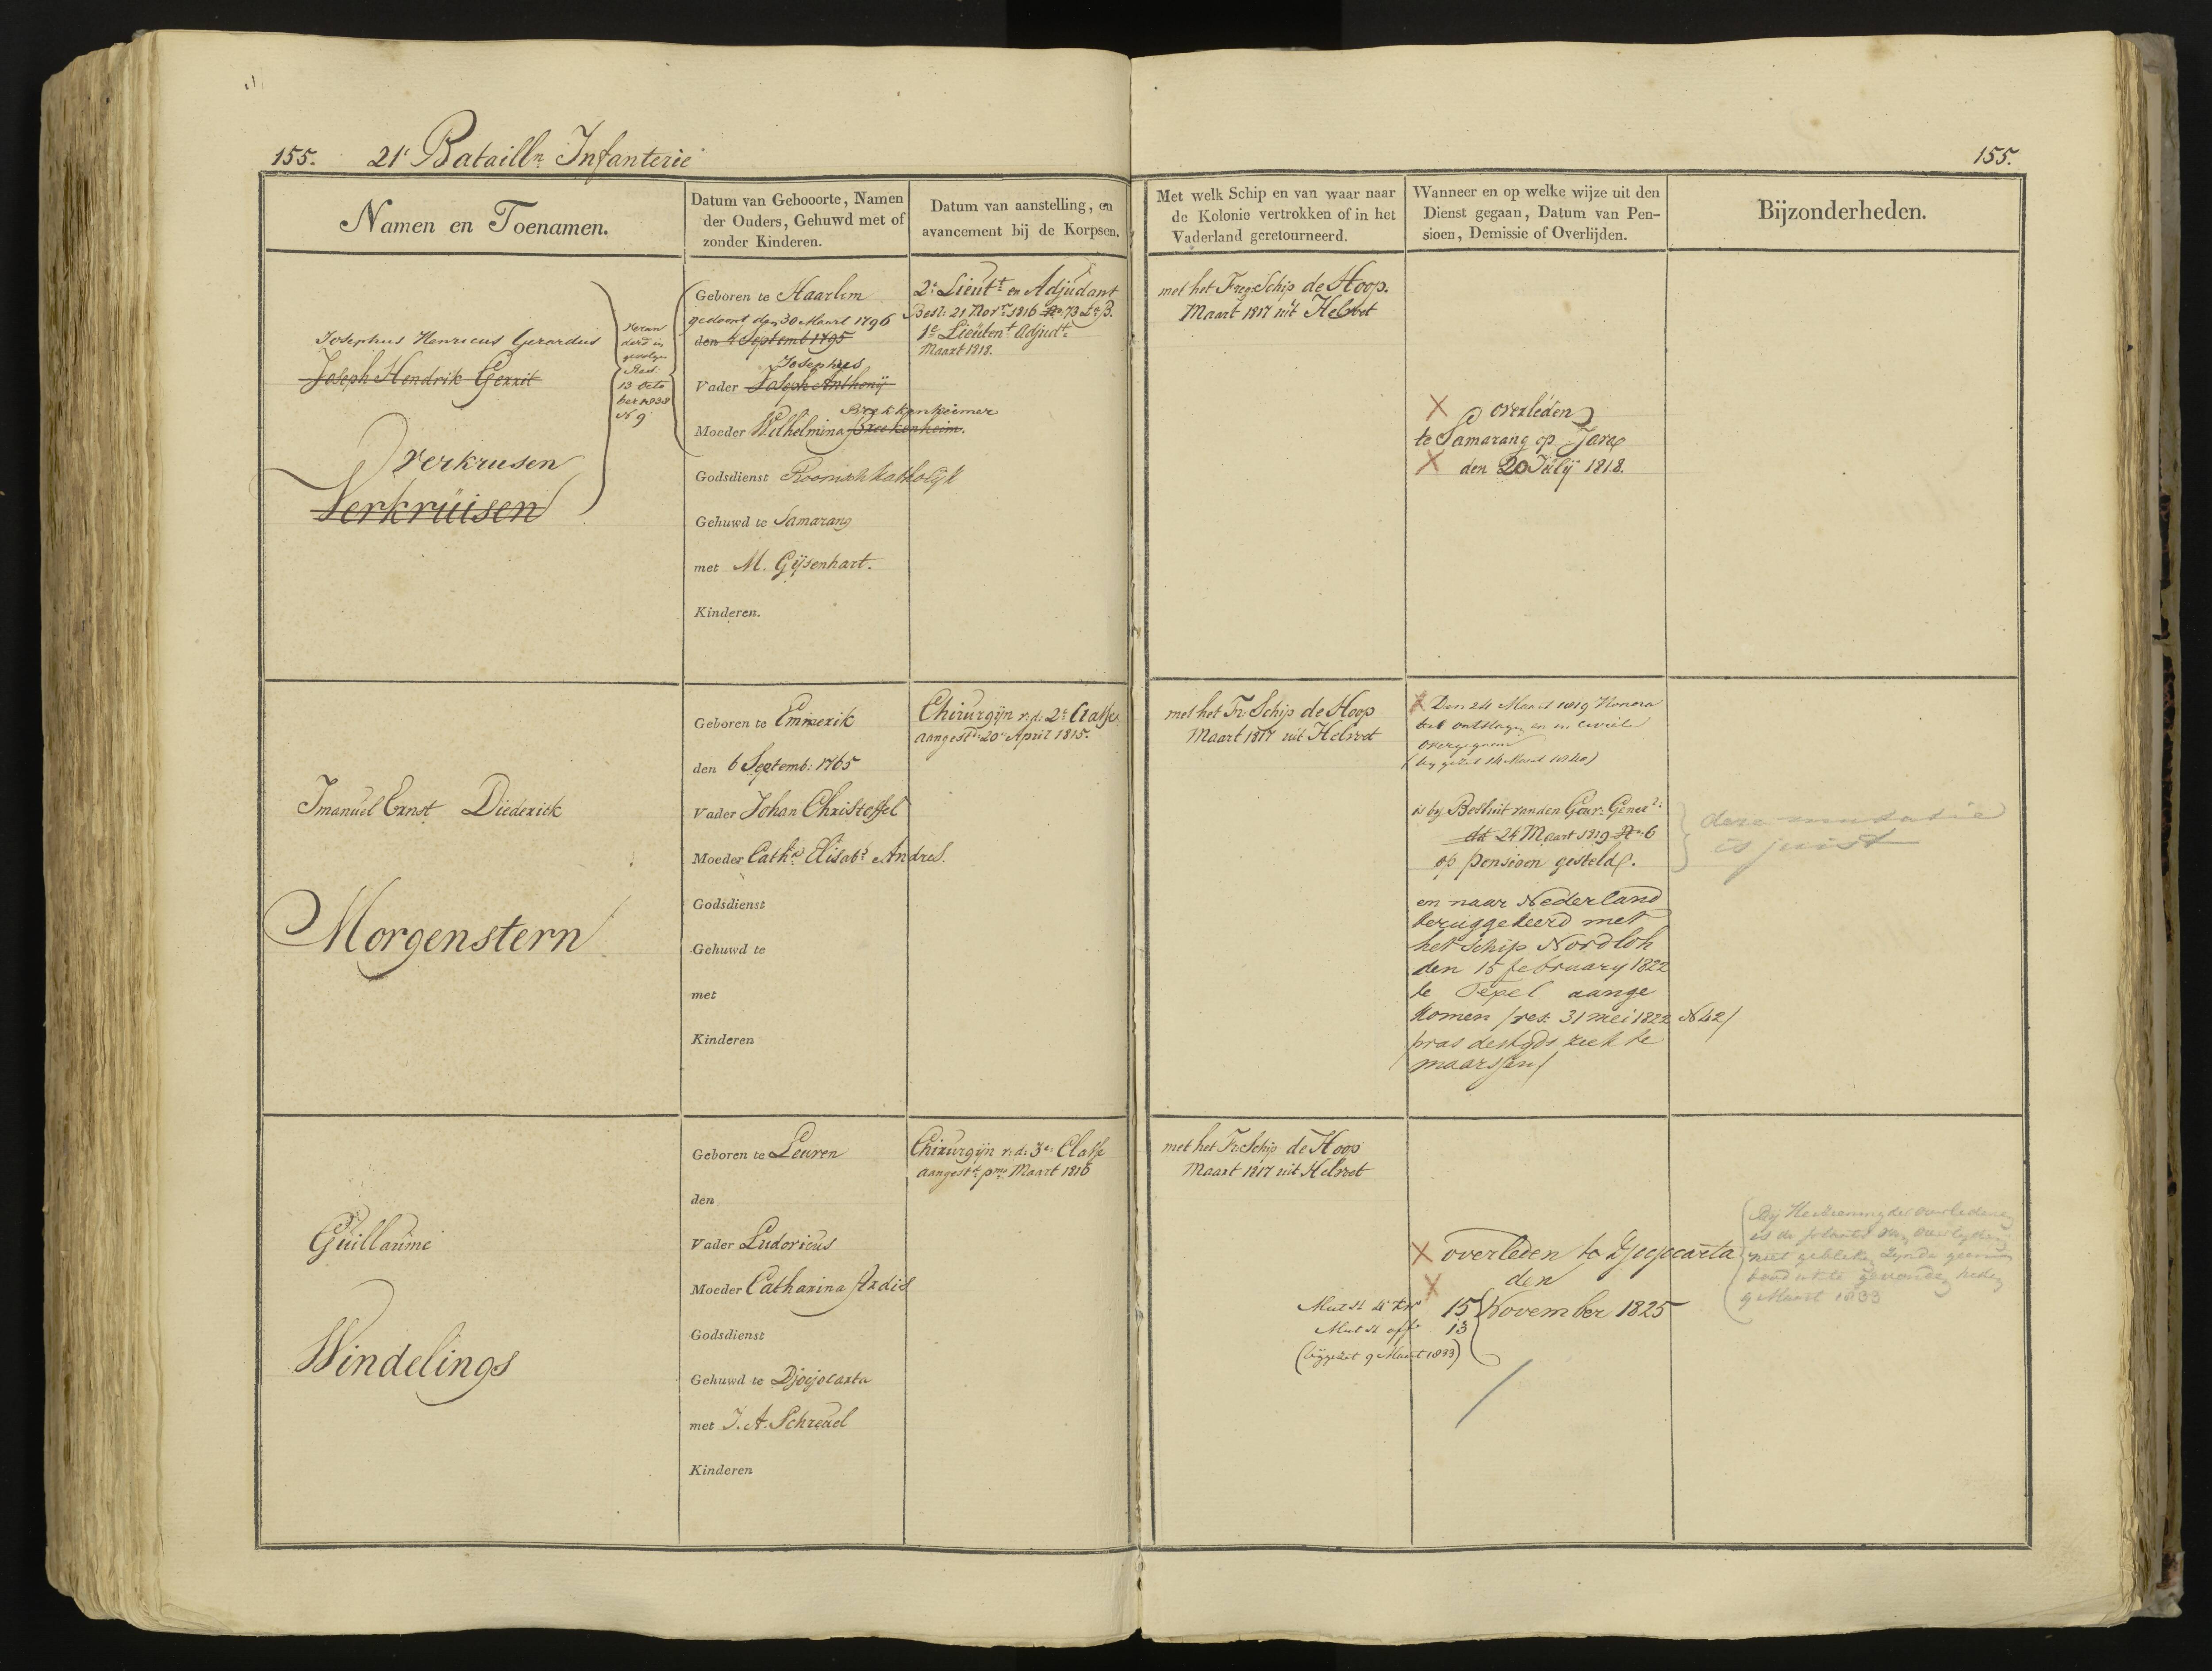 155. 21e Batailln Infanterie
155.
Namen en Toenamen.
Datum van Gebooorte, Namen
der Ouders, Gehuwd met of
zonder Kinderen.
Datum van aanstelling, en
avancement bij de Korpsen.
Met welk Schip en van waar naar
de Kolonie vertrokken of in het
Vaderland geretourneerd.
Wanneer en op welke wijze uit den
Dienst gegaan, Datum van Pen-
sioen, Demissie of Overlijden.
Bijzonderheden.
Josephus Henricus Gerardus
Joseph Hendrik Gerrit
Verkrusen
Verkruisen
Veran
derd in
gevolge
Res.
13 Octo
ber 1838
N 9
Geboren te Haarlem
gedoopt den 30 Maart 1796
den 4 Septemb 1795
Josephus
Vader Joseph Anthonij
Breekkenheimer
Moeder Wilhelmina Breekenheim.
Godsdienst Roomschkatholijk
Gehuwd te Samarang
met M. Gijsenhart.
Kinderen.
2e Lieutt en Adjudant
Besl: 21 Novr 1816 No 73 La B.
1e Lieutent Adjudt
Maart 1818.
met het Freg. Schip de Hoop.
Maart 1817 uit Helvoet
X overleden
te Samarang op Java
X den 20 Julij 1818.
Imanuel Ernst Diederick
Morgenstern
Geboren te Emmerik
den 6 Septemb: 1765
Vader Johan Christoffel
Moeder Catha Elisabt Andres.
Godsdienst
Gehuwd te
met
Kinderen
Chirurgijn v. d. 2e Classe
aangestd 20 April 1815.
met het Fr. Schip de Hoop
Maart 1817 uit Helvoet
X Den 24 Maart 1819 Honora
bel ontslagen en in civiele
overgegaan
(bij gezet 14 Maart 1840)
is bij Besluit van den Gouvr Genel
dd 24 Maart 1819 No 6
op pensioen gesteld.
en naar Nederland
teruggekeerd met
het schip Nordloh
den 15 february 1822
te Texel aange
komen /res. 31 mei 1822 N 42/
/was destijds ziek te
maarssen/
deze mutatie
is juist
Guillaume
Windelings
Geboren te Leuven
den
Vader Ludovicus
Moeder Catharina Ardies
Godsdienst
Gehuwd te Djocjocarta
met J. A. Schreuel
Kinderen
Chirurgijn v. d. 3e Classe
aangestd pmo Maart 1816
met het Fr. Schip de Hoop
Maart 1817 uit Helvoet
X overleden te Djocjocarta
X den
15 November 1825
Mut st
Mut st off 13
(bijgezet 9 Maart 1833)
Bij der overledene
is de plaats van overlijden
niet gebleken zijnde geen
9 Maart 1833